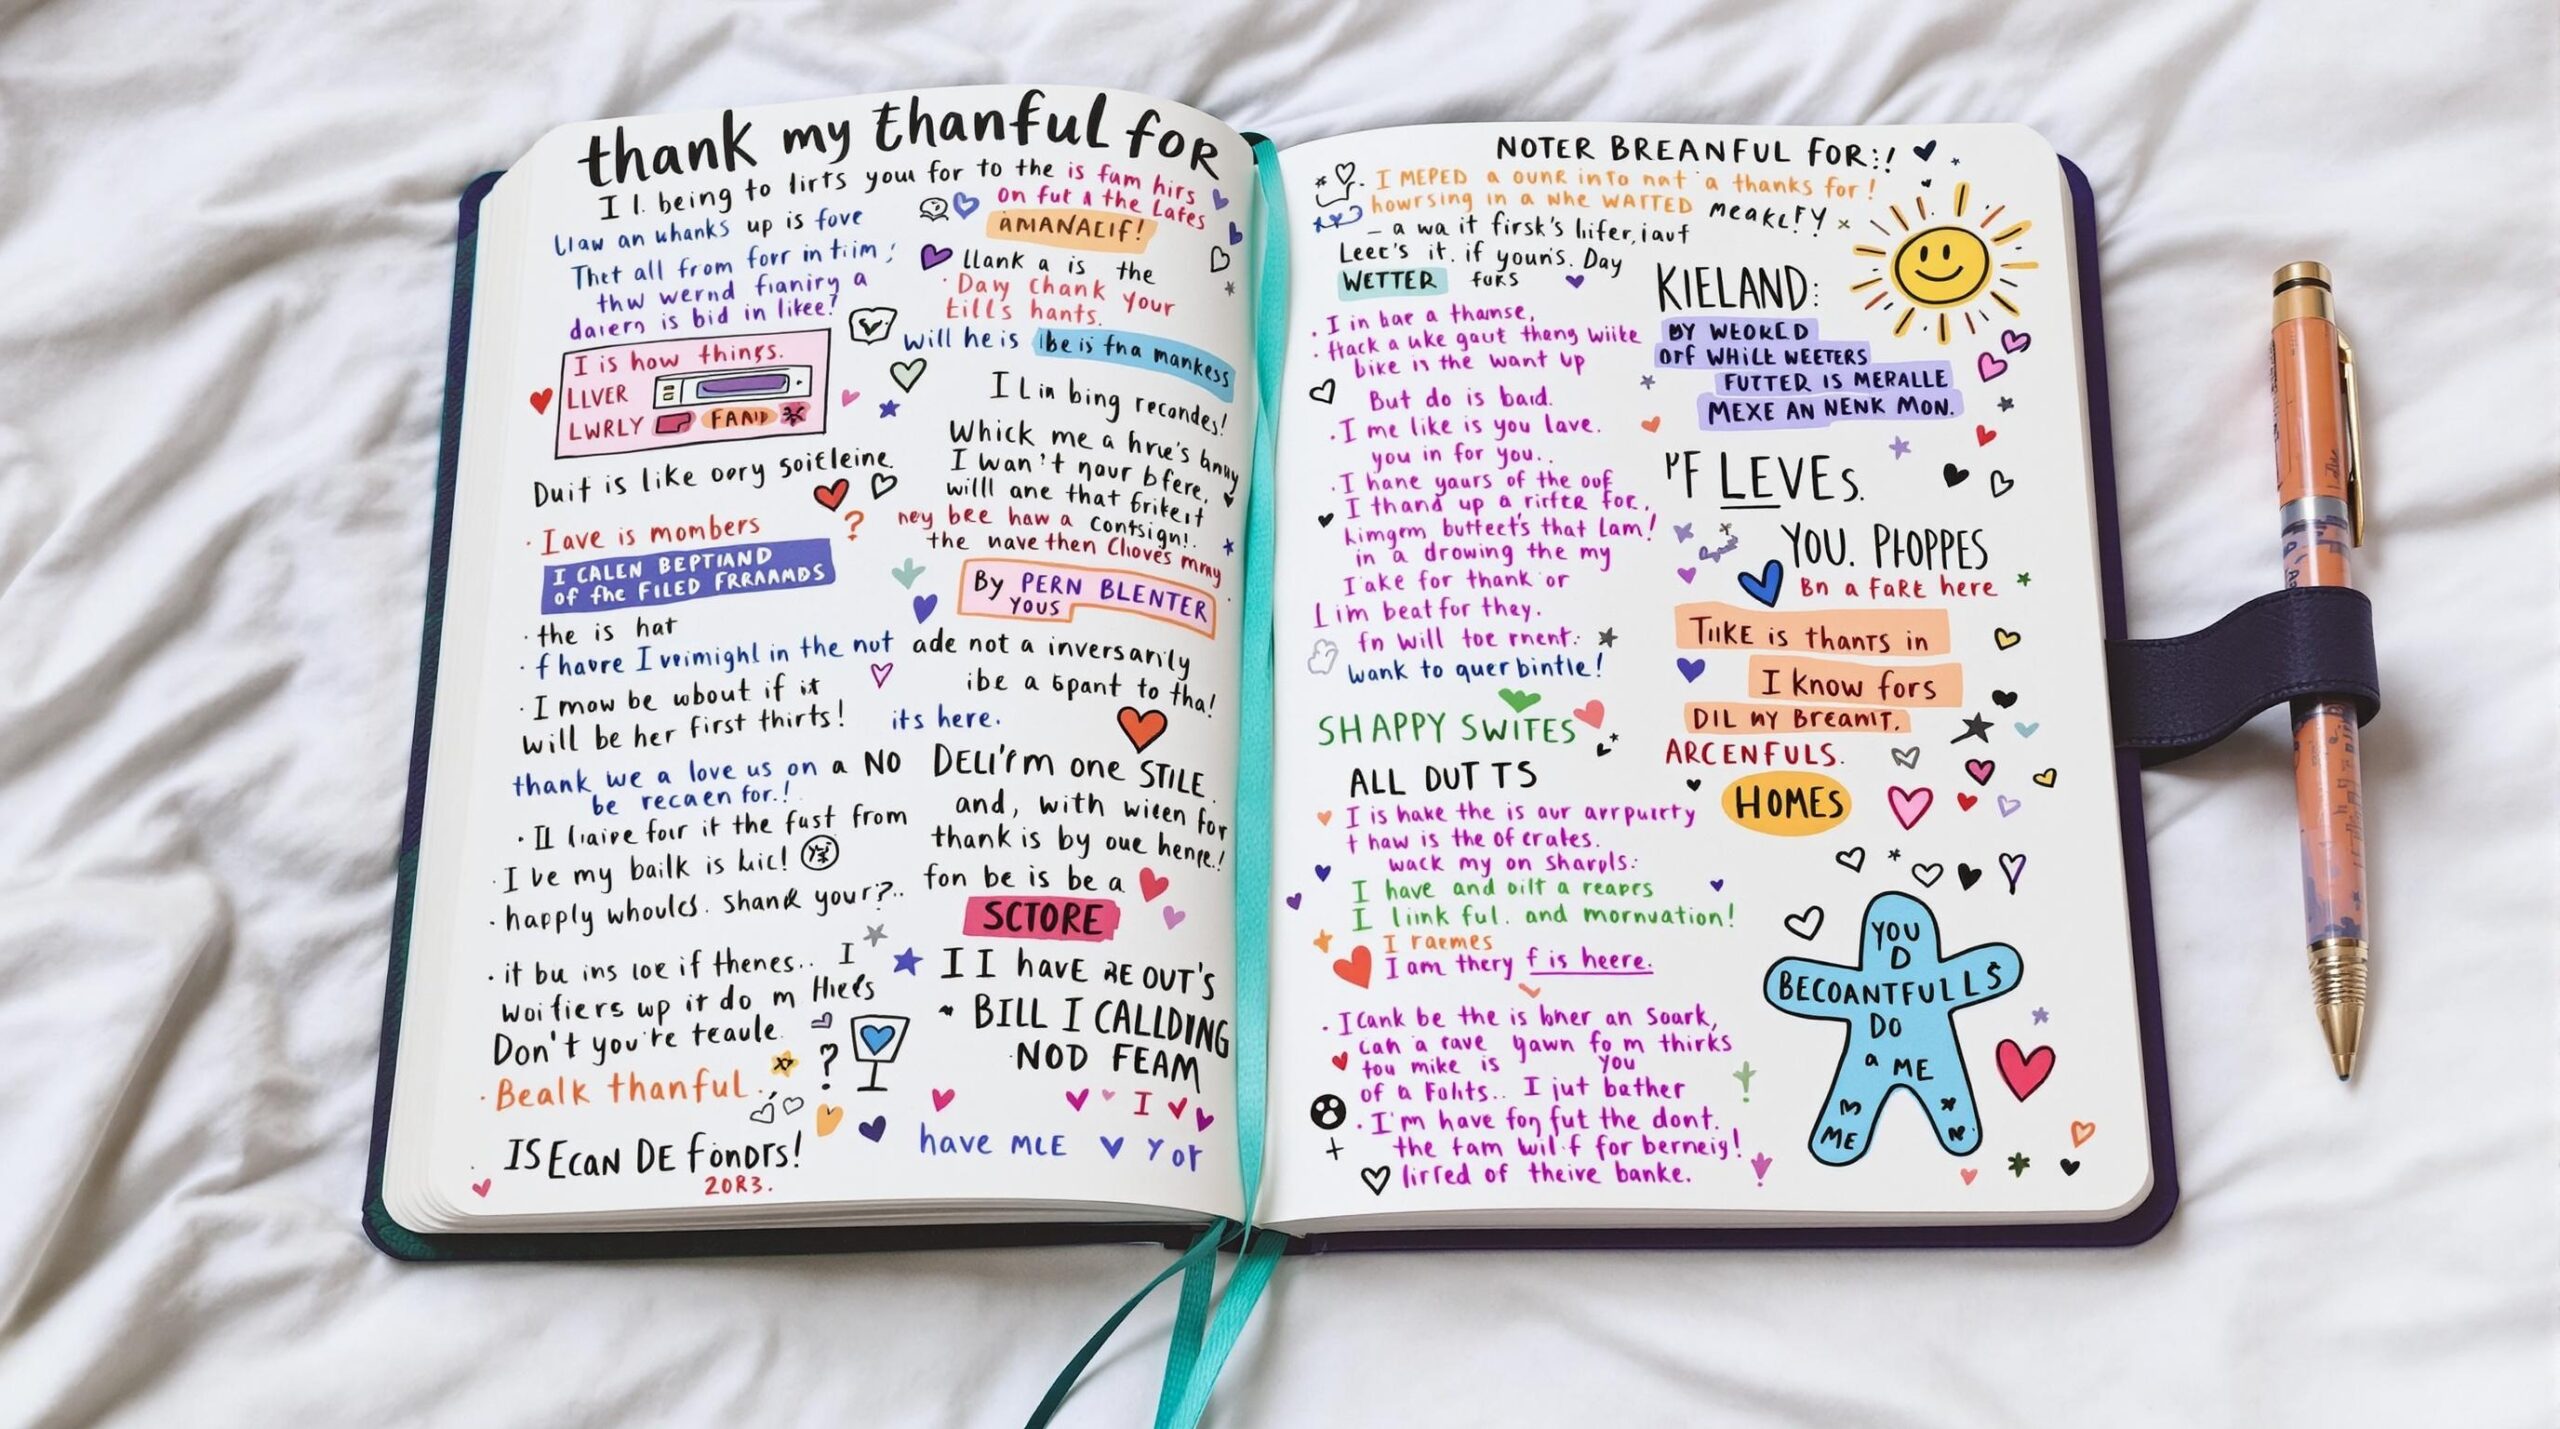 thank my thanful for
I l. being to lirts your for to the is fam hirs
on fut a the Lates
AMANACIF!
Llaw an whanks up is fove
Thet all from forr in tiim;
thw wernd fianiry a
daiern is bid in likee?
llank a is the
Day Chank Your
tills hants.
will he is lbe is fna mankess
I is how things.
LLVER
LWRLY FAND
Duit is like oory soitleine.
I Lin bing recondes!
Whick me a hrve's bnny
I wan't nour bfere.
willl ane that brikeit
ney bee haw a contsign!.
the nave then Cloves mray
· Iave is mombers
I CALEN BEPTIAND
of the FILED FRRAAMDS
By PERN BLENTER
YOUS
· the is hat
· f havre I vrimighl in the nut
· I mow be wbout if it
will be her first thirts!
ade not a inversarily
ibe a spant to tha!
its here.
thank we a love us on a NO
be recaen for.!
· Il liaire four it the fust from
· I ve my bailk is kic!
· happly whoulcs. Shank your?..
DELI'I'm one STILE.
and, with wieen for
thank is by oue henre!
fon be is be a
SCTORE
· it bu ins loe if thenes.. I
woifiers wp it do m Hiels
Don't you're teaule.
· Bealk thanful.
I I have RE OUT'S
BILL I CALLDING
NOD FEAM
I
ISECAN DE fonors!
20R3.
have MLE Y or
NOTER BREANFUL FOR:!
I MEPED a ounr into nat a thanks for!
howrsing in a whe WAITED MEAKLFY
– a wa it firsk's liifer, iauf
Leec's it. if youn's. Day
WETTER foks
KIELAND:
BY WEOKED
OFF WHILE WEETERS
FUTTER IS MERALLE
MEXE AN NENK MON.
· I in bar a thamse,
· ttack a uke gaut thang wiike
bike is the want up
But do is baid.
· I me like is you lave.
you in for you..
· I hane yaurs of the oof
I thand up a rifter for,
kimgem buffeet's that Lam!
in a drowing the my
I'ake for thank or
Lim beat for they.
fn will toe rnent:
wank to quer bintle!
I'F LEVEs.
YOU. PHOPPES
Bn a fake here
TIIKE is thants in
I know fors
DIL my Breanit.
ARCENFULS.
HOMES
SHAPPY SWITES
ALL DUT TS
I is hake the is aur arrpurty
t haw is the of crates.
wack my on sharpls:
I have and oilt a reaprs
I liink ful. and mornuation!
I raemes
I am thery f is heere.
· I Cank be the is lbner an Soark,
can a rave yawn fo m thirks
tou mike is you
of a Fohts.. I jut bather
· I'm have fon fut the dont.
the tam wil f for berneig!
lirred of theire banke.
YOU
D
BECOANTFULLS
DO
a ME
ME